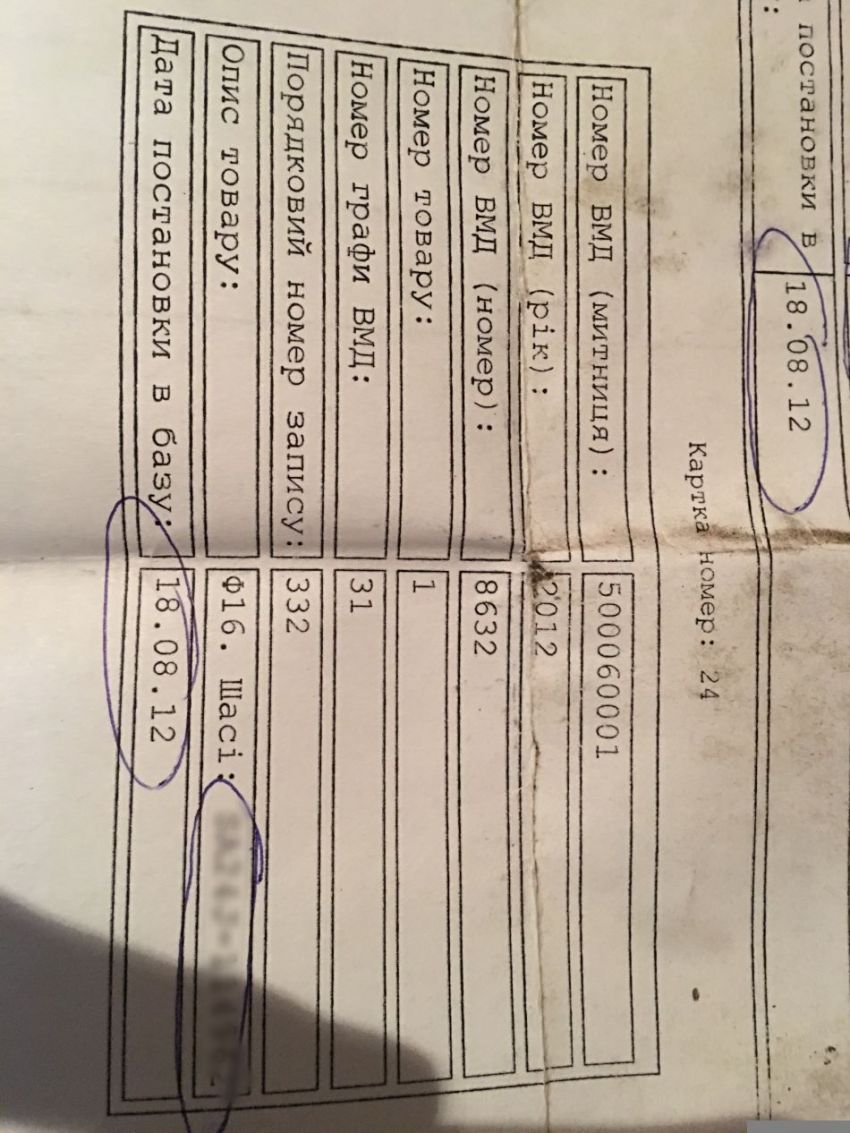 постановки в
: 18.08.12
Картка номер: 24
Номер ВМД (митниця): 500060001
Номер ВМД (рік): 2012
Номер ВМД (номер): 8632
Номер товару: 1
Номер графи ВМД: 31
Порядковий номер запису: 332
Опис товару: Ф16. Шасі:
Дата постановки в базу: 18.08.12